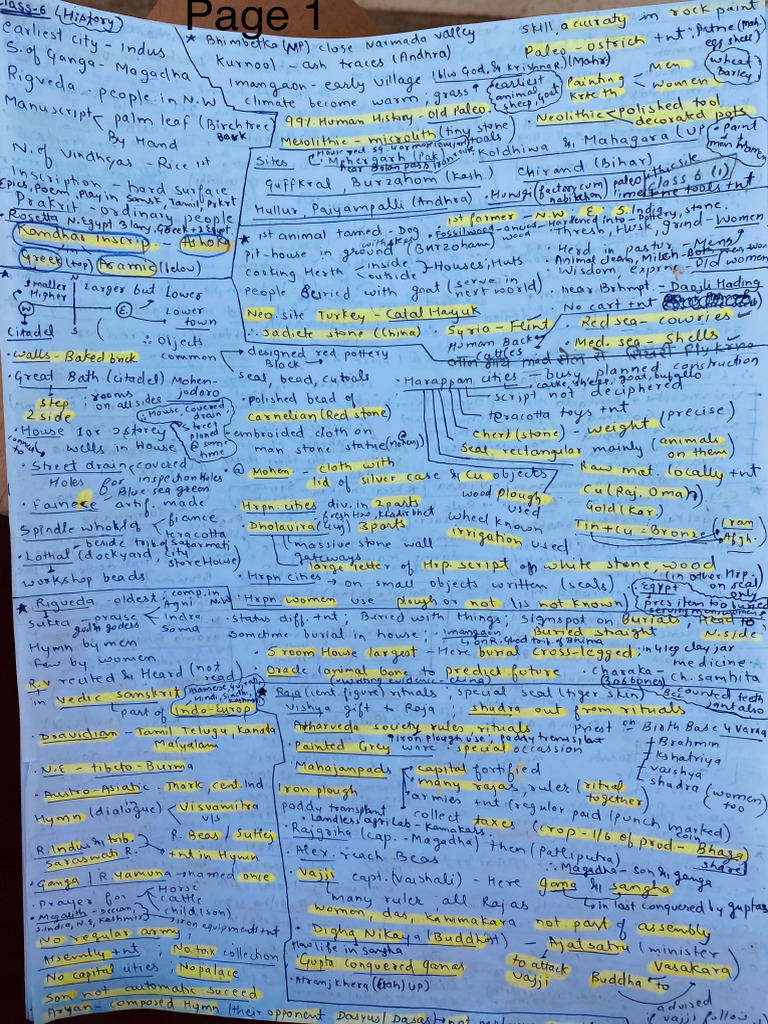 Page 1
Class-6 (History)
earliest city - Indus
S. of Ganga - Magadha
Rigveda - people in N.W
Manuscript palm leaf (Birch tree Bark
By Hand
N. of Vindhyas - Rice 1st
Inscription - hard surface
Epics, Poem, Play in Sansk, Tamil, Prkrt
Prakrit - ordinary people
Rosetta N. Egypt 3 lang. Greek + 2 Egypt.
Kandhar Inscrip. - Ashoka
Greek (top) Aramic (below)
★ Bhimbetka (MP) close Narmada valley
Kurnool - ash traces (Andhra)
Inamgaon - early village (b/w God. & Krishna R.) (Mahr)
climate become warm grass
earliest animal sheep, Goat
99% Human History - Old Paleo.
Mesolithic - microlith (tiny stone) tools
Sites Mehergarh (Pak.
near Bolan pass
Koldhiwa & Mahagara (UP
Guffkral Burzahom (Kash.) Chirand (Bihar)
Hullur, Paiyampalli (Andhra)
Hunsgi (factory cum habitation) paleolithic site
limestone tools +nt
Class 6 (1)
skill, accuraty in rock paint
Paleo - ostrich +nt, Patne (Mah.
egg shell)
Painting Men
Krte th women
wheat Barley
Neolithic polished tool
decorated pots
Paint men women
★ 1st animal tamed - Dog
pit-house in ground (Burzoham)
cooking Herth inside outside Houses, Huts
People Buried with goat (serve in next world)
Neo. site Turkey - Catal Hayuk
Jadiete stone (China)
Syria - Flint
Human Back
cattles
1st farmer - N.W, E. S. India
Fossil wood - ancient - Hardened into - stone
Thresh, Husk, grind - Women
Herd in pastur - Men
Animal clean, Milch - Both men won
Wisdom, exprnc - Old women
near Brhmpt - Daojli Hading
No cart +nt
Red sea - cowries
Med. sea - Shells
Smaller Larger but Lower
Higher
N
W E
S
Citadel
Lower town
walls - Baked brick
Great Bath (citadel) Mohen-jodaro
step 2 side
rooms on all sides
House 1 or 2 storey
wells in House
House, covered drain Street planed @ same time
Street drain covered
Holes for inspection Holes
Blue sea green
Faience - artif. made
Spindle whorl of fiance
teracotta
beside trib. of Sabarmati
Lothal (dockyard, city, storeHouse)
workshop beads
Objects common designed red pottery
Black
seal, bead, cu tools
polished bead of
carnelian (Red stone)
embroided cloth on
man stone statue (@ Mohenj)
@ Mohen - cloth with
lid of silver case & Cu objects
Hrpn. cities div. in 2 parts
Dholavira (Guj) 3 parts
massive stone wall
gateways
large letter of Hrp. script of white stone, wood
Hrpn cities → on small objects written (seals)
(in other Hrp. on seal only
Harappan cities - busy, planned construction
cattle, sheep, goat, buffalo
script not deciphered
teracotta toys +nt
Chert (stone) - weight (precise)
Seal rectangular mainly (animals on them)
Raw mat. locally +nt
Cu (Raj, Oman)
Gold (Kar)
Tin + Cu = Bronze (Iran Afgh.
wood plough used
wheel known
irrigation used
Hrpn women use plough or not (is not known)
★ Rigveda - oldest : comp. in N.W
Sukta - praise Agni
Indra
Soma
god & godess
Hymn by men
Few by women
R.V recited & Heard (not read)
in vedic sanskrit
part of Indo-europ
Dravidian - Tamil, Telugu, Kanada
Malyalam
N.E - tibeto-Burma
Austro-Asiatic - Thark cent Ind
Hymn (dialogue) Visvamitra
v/s
R. Beas / Sutlej
R. Indus & trib.
Saraswati R. +nt in Hymn
Ganga / R. Yamuna → named once
Prayer for Horse
cattle
child (son)
Megalith - Deccan, S. India, N.E, Kashmir
Iron equipments +nt
No regular army
Assembly +nt No tax collection
No capital cities ; No palace
Son not automatic suceed
Aryan - composed Hymn (their opponent Dasyus / Dasas
status diff. +nt ; Buried with things; signs pot on burials, Head to N. side
sometime burial in house : Inamgaon Buried straight
5 room House largest - Here burial cross-legged ; in 4 leg clay jar
Oracle (animal bone to predict future
charaka - ch. samhita medicine
★ Raja (cent. figure) rituals ; special seat (tiger skin)
Vishya gift to Raja ; shudra out from rituals
Atharveda society rules, rituals
Priest on Birth Base 4 Varna
Brahmin
Kshatriya
Vaishya
shudra (women) too
iron plough use, paddy transplat
Painted Grey ware - special occassion
Mahajanpads capital fortified
many rajas, ruler (ritual together)
armies +nt (regular paid (punch marked) coin
collect taxes (crop - 1/6 of prod - Bhaga share)
Iron plough
paddy transplant
Landless agri lab - Kamakars.
Rajgriha (cap. - Magadha) then (Patliputra)
Alex. reach Beas
Magadha - son & ganga
Vajji capt. (Vaishali) - Here gana & sangha
in last conquered by guptas
many ruler all Rajas
women, das, kammakara not part of assembly
Digha Nikaya (Buddhist) - Ajatsatru (minister)
How life in sangha
to attack vajji
Vasakara
Gupta conquered ganas
Buddha to
advised
Atranjkhera (Etah) UP)
if vajji follow